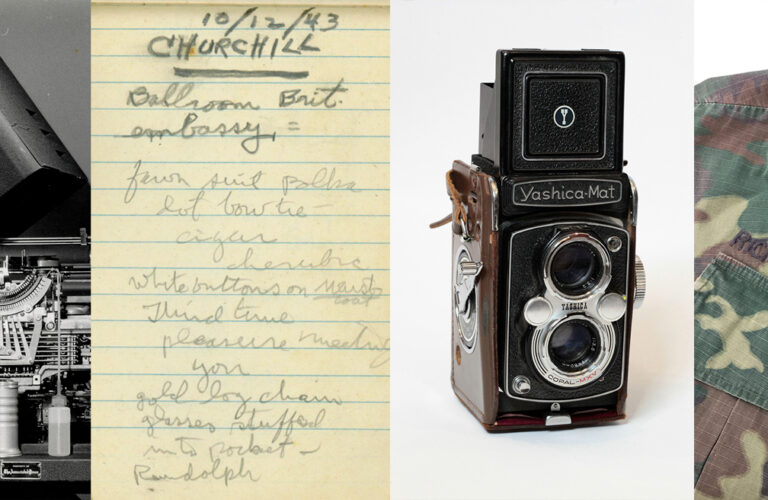 10/12/43
CHURCHILL
Ballroom Brit.
embassy, =
fawn suit Polka
dot bow tie –
cigar
cherubic
white buttons on waist
coat
Third time
pleasure meeting
you
gold log chain
glasses stuffed
into pocket –
Randolph
Y
Yashica-Mat
YASHICA
COPAL-MXV